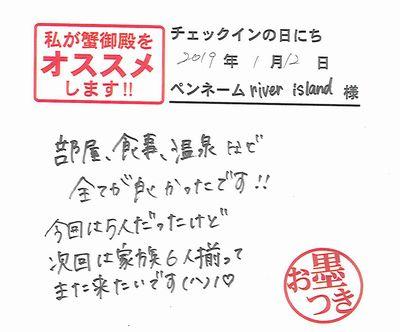 私が蟹御殿を
オススメ
します!!
チェックインの日にち
2019年 1月12日
ペンネーム river island 様
部屋、食事、温泉など
全てが良かったです!!
今回は5人だったけど
次回は家族6人揃って
また来たいです(^^)♡
お墨つき